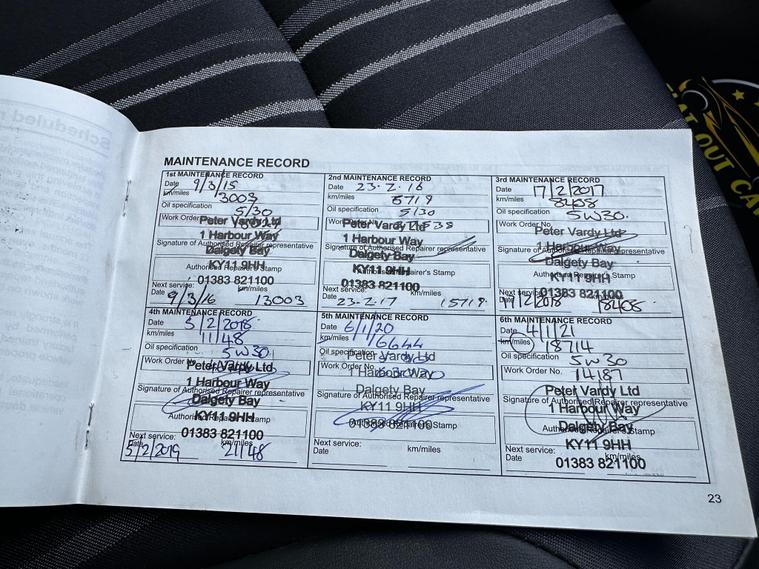 MAINTENANCE RECORD
1st MAINTENANCE RECORD
Date 9/3/15
km/miles 3003
Oil specification 5/30
Work Order No.
Peter Vardy Ltd
1 Harbour Way
Signature of Authorised Repairer representative
Dalgety Bay
KY11 9HH
Authorised Repairer's Stamp
01383 821100
Next service:
Date 9/3/16 km/miles 13003
2nd MAINTENANCE RECORD
Date 23-2-16
km/miles 5719
Oil specification 5/30
Peter Vardy Ltd
1 Harbour Way
Signature of Authorised Repairer representative
Dalgety Bay
KY11 9HH
Authorised Repairer's Stamp
01383 821100
Next service:
Date 23-2-17 km/miles 15719
3rd MAINTENANCE RECORD
Date 17/2/2017
km/miles 8408
Oil specification 5W30.
Work Order No.
Peter Vardy Ltd
1 Harbour Way
Signature of Authorised Repairer representative
Dalgety Bay
Authorised Repairer's Stamp
KY11 9HH
Next service: 01383 821100
Date 17/2/2018 km/miles 18408
4th MAINTENANCE RECORD
Date 5/2/2018
km/miles 11148
Oil specification 5W30
Work Order No.
Peter Vardy Ltd
1 Harbour Way
Signature of Authorised Repairer representative
Dalgety Bay
KY11 9HH
Authorised Repairer's Stamp
01383 821100
Next service:
Date 5/2/2019 km/miles 21148
5th MAINTENANCE RECORD
Date 6/1/20
km/miles 16644
Oil specification
Peter Vardy Ltd
Work Order No.
1 Harbour Way
Dalgety Bay
Signature of Authorised Repairer representative
KY11 9HH
Authorised Repairer's Stamp
01383 821100
Next service:
Date km/miles
6th MAINTENANCE RECORD
Date 4/1/21
km/miles 18714
Oil specification 5W30
Work Order No. 14187
Peter Vardy Ltd
Signature of Authorised Repairer representative
1 Harbour Way
Dalgety Bay
Authorised Repairer's Stamp
KY11 9HH
Next service:
Date km/miles
01383 821100
23